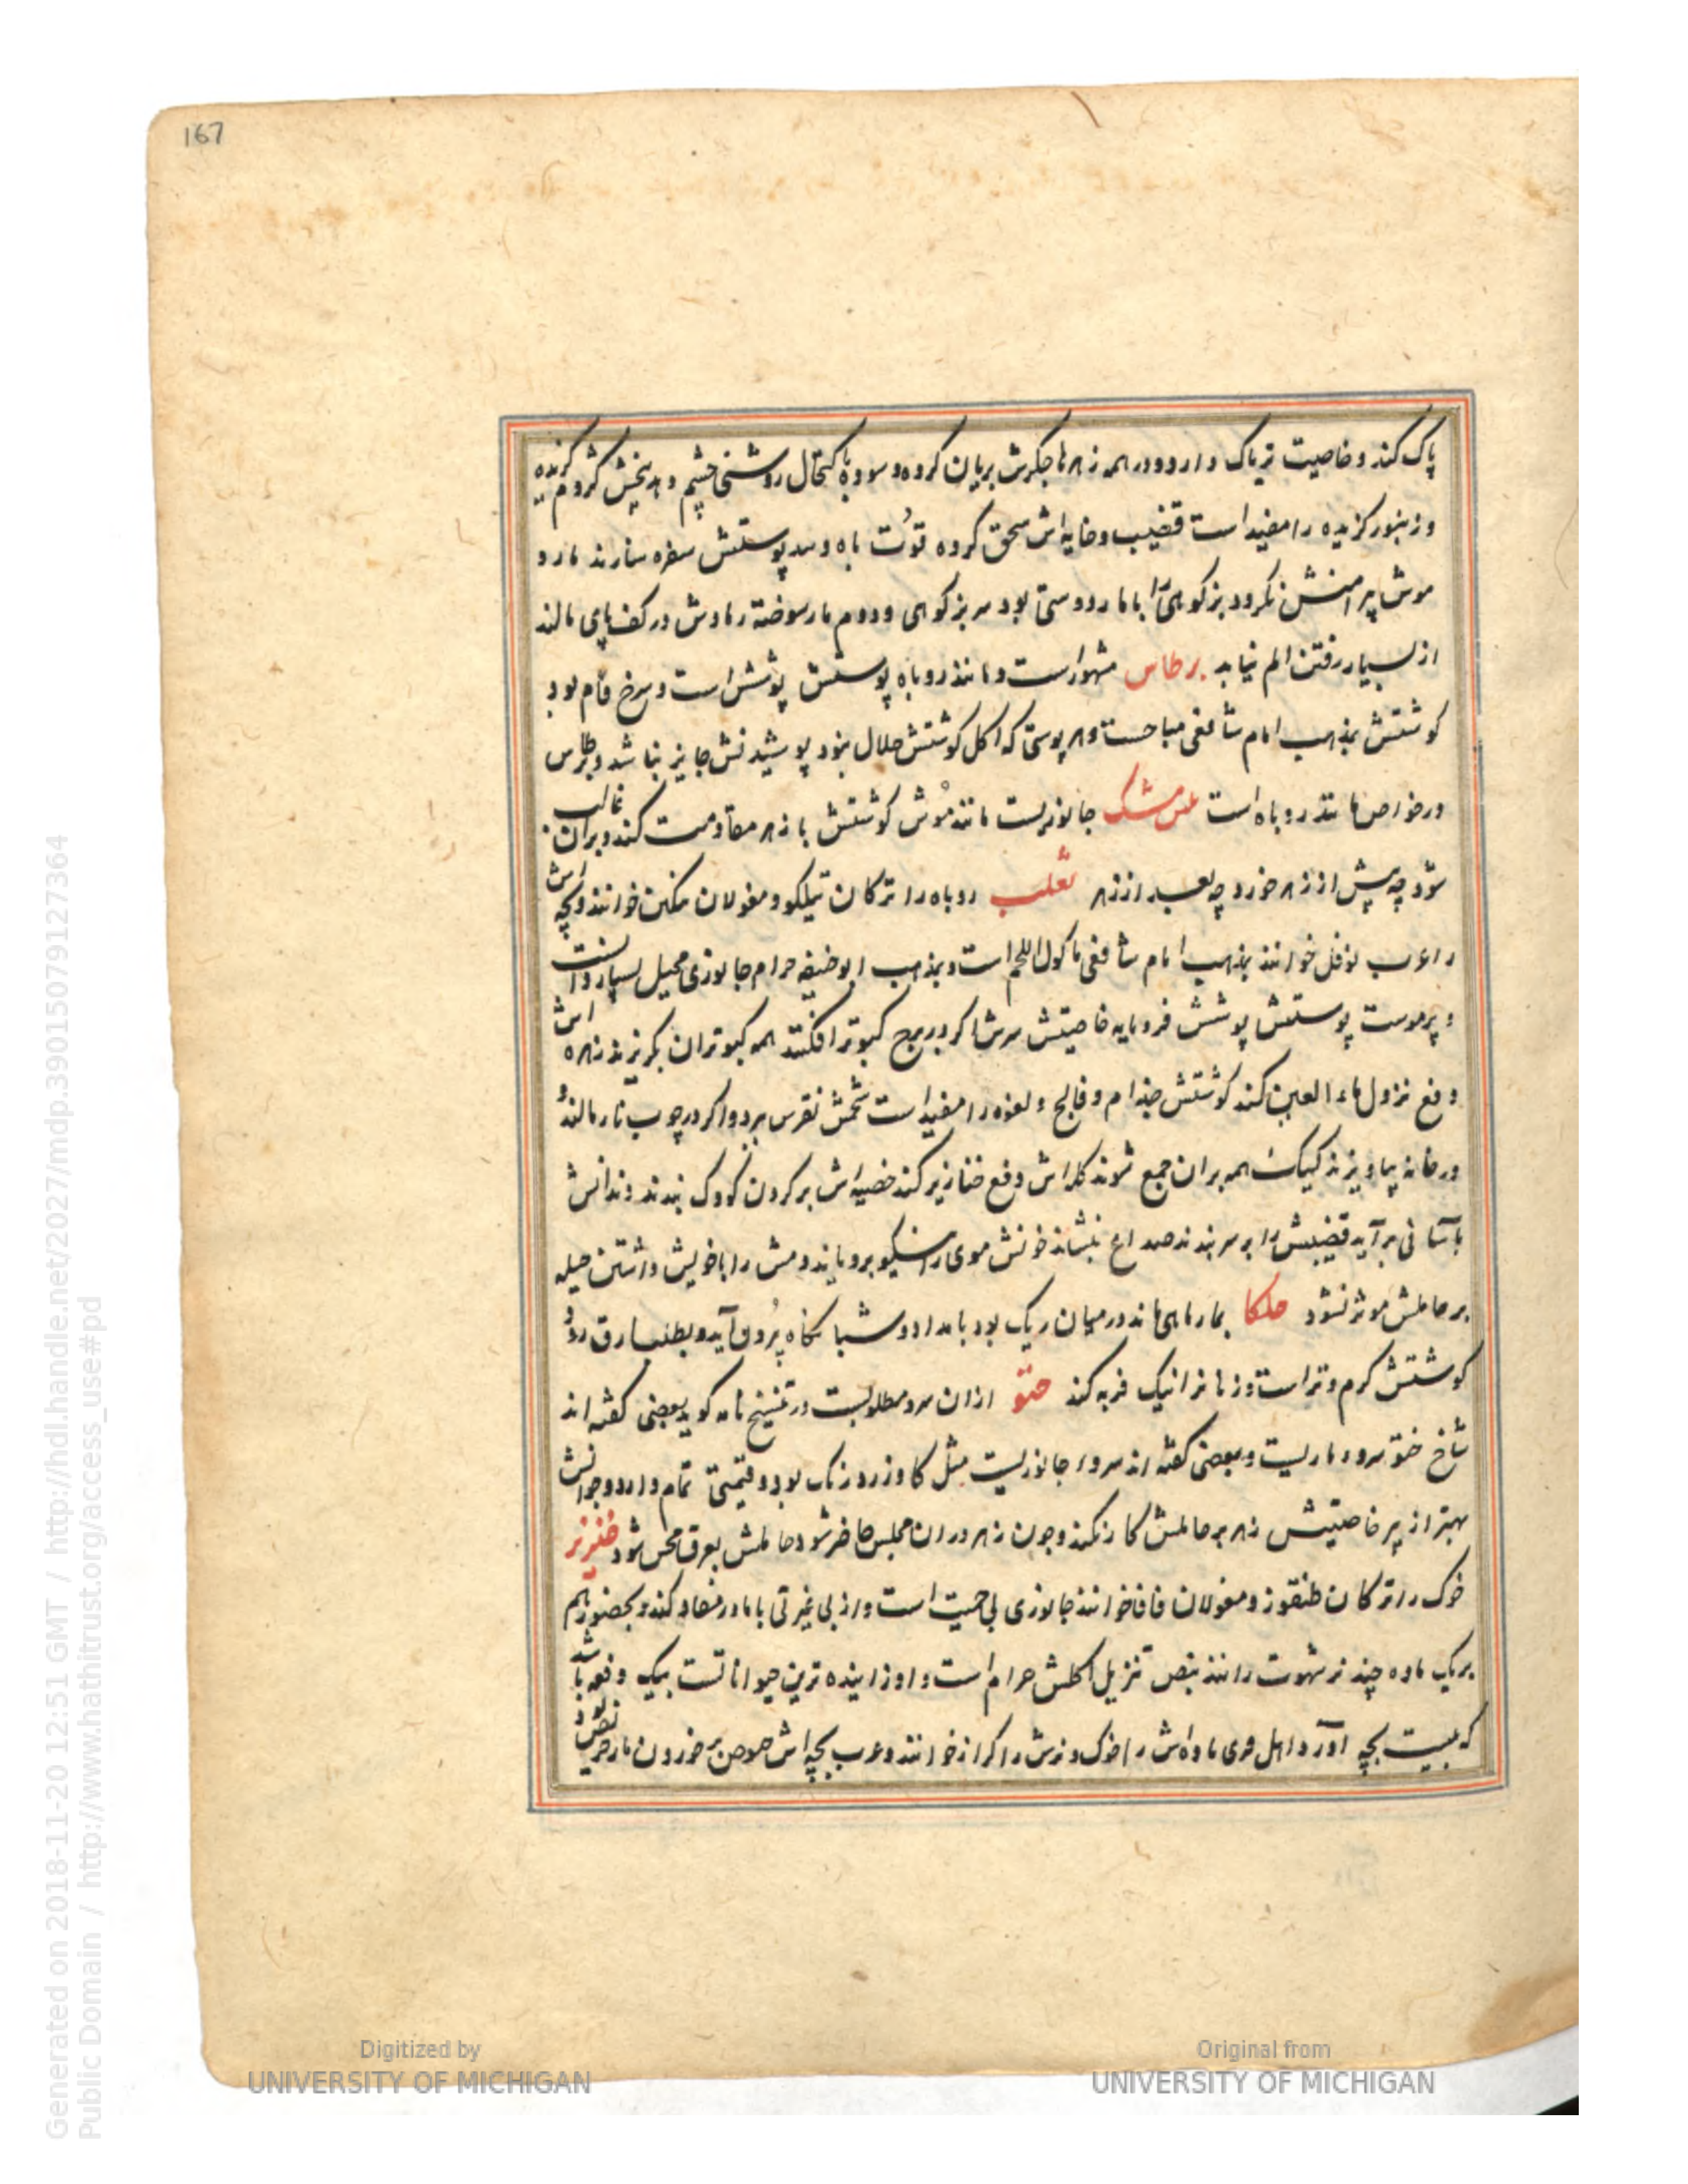 167
پاک کند و خاصیت تریاک دارد و در همه زهرها جگرش بریان کرده و سوده باکتحال روشنی چشم دهد بخش کژدم گزیده
و زنبور گزیده را مفید است قضیب و خایه‌اش سحق کرده قوت باه دهد پوستش سفره سازند مار و
موش پیرامنش نگردد بز کوهی را با مار دوستی بود سر بز کوهی و دوم مار سوخته رمادش در کف پای مالند
از بسیار رفتن الم نیابد برطاس مشهور است و مانند روباه پوستش پوشش است و سرخ فام بود
کوشتش بمذهب امام شافعی مباحست و هر پوستی که اکل کوشتش حلال نبود پوشیدنش جایز نباشد و برطاس
در خواص مانند روباه است مشک جانوریست مانند موش کوشتش با زهر مقاومت کند و بران غالب
شود چه پیش از زهر خورد چه بعد از زهر ثعلب روباه را ترکان تیلکو و مغولان خوانند و بچه‌اش
را عرب نوفل خوانند بمذهب امام شافعی ماکول اللحم است و بمذهب ابو حنیفه حرام جانوری محیل بسیار
و پرموست پوستش پوشش فرومایه خاصیتش سرش اگر در برج کبوتر افکنند همه کبوتران بگریزند زهره‌اش
دفع نزول ماء العین کند کوشتش جذام و فالج و لقوه را مفید است شحمش نقرس ببرد و اگر در چوب نار مالند و
در خانه بیاویزند کیک همه بران جمع شوند کله‌اش دفع خنازیر کند خصیه‌اش بر گردن کودک بندند دندانش
بآسانی برآید قضیبش را بر سر بندند صداع بنشاند خونش موی را نیکو برویاند دمش را با خویش داشتن حیله
بر حاملش موثر نشود حلکا بمار ماهی ماند در میان ریک بود بامداد و شبانگاه برون آید و بطلب رزق رود
کوشتش گرم و تر است و زنانرا نیک فربه کند ختو ازان سرد مطلوبست در تنسخ نامه گوید بعضی گفته‌اند
شاخ ختو سرد ماریست و بعضی گفته‌اند سرو جانوریست مثل گاو زرد رنگ بود و قیمتی تمام دارد و جوانش
بهتر از پیر خاصیتش زهر بر حاملش کار نکند و چون زهر در ان مجلس حاضر شود حاملش بعرق محس شود خنزیر
خوک را ترکان طنقوز و مغولان قاقا خوانند جانوری بی حمیت است و از بی غیرتی با مادر فساد کند و بحضور هم
بر یک ماده چند نر شهوت رانند بنص تنزیل اکلش حرام است و او زاینده ترین حیواناتست بیک دفعه باشد
که بیست بچه آورد اهل فری ماده‌اش را خوک و نرش را گراز خوانند و عرب بچه‌اش خنوص بر خوردن مار حریص بود
Generated on 2018-11-20 12:51 GMT / http://hdl.handle.net/2027/mdp.39015079127364
Public Domain / http://www.hathitrust.org/access_use#pd
Digitized by
UNIVERSITY OF MICHIGAN
Original from
UNIVERSITY OF MICHIGAN